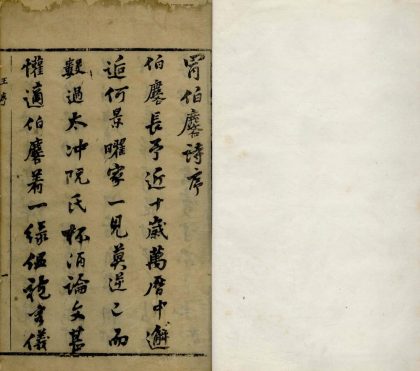 胥伯麐詩序
伯麐長予近十歲萬曆中邂
逅何景曜家一見莫逆已而
數過太冲阮氏杯酒論文甚
懽適伯麐著一綠
王序